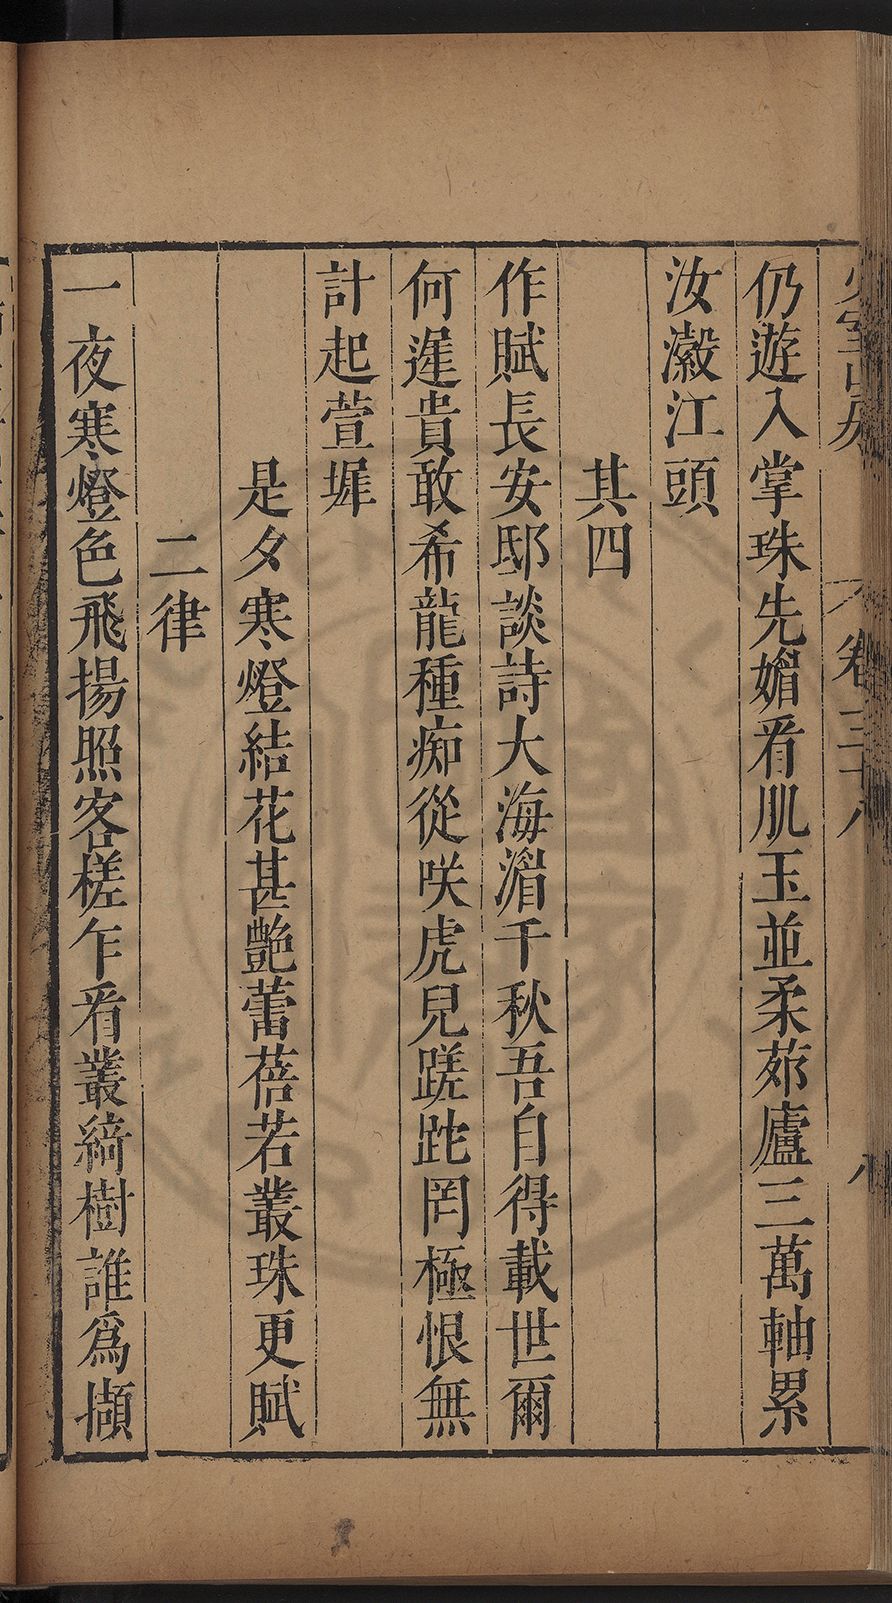 仍遊入掌珠先媚看肌玉並柔茆廬三萬軸累
汝瀫江頭
其四
作賦長安邸談詩大海湄千秋吾自得載世爾
何遲貴敢希龍種痴從咲虎兒蹉跎罔極恨無
計起萱墀
是夕寒燈結花甚艶蕾蓓若叢珠更賦
二律
一夜寒燈色飛揚照客槎乍看叢綺樹誰爲擷